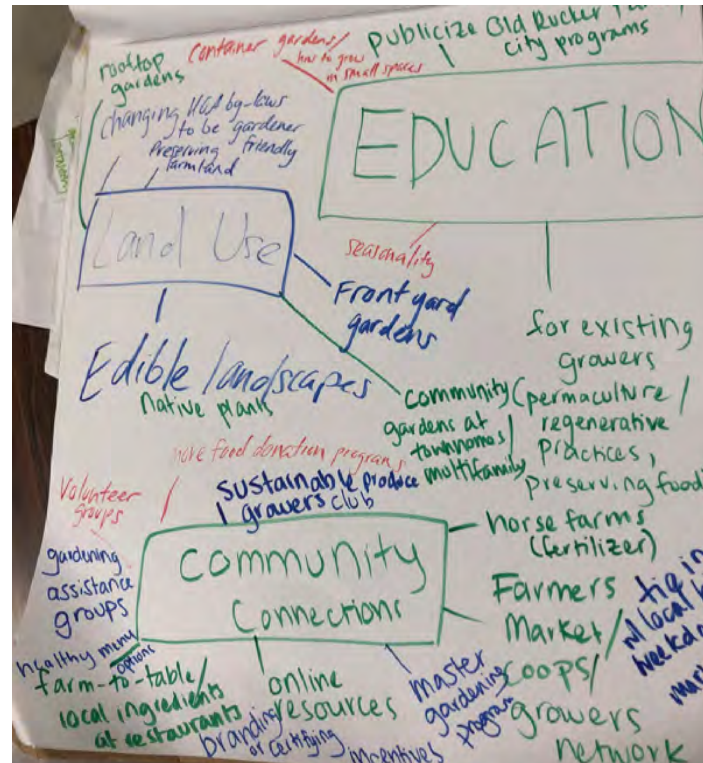 rooftop
gardens
container gardens/
how to grow
in small spaces
publicize Old Rucker
city programs
changing HOA by-laws
to be gardener
friendly
Preserving
farmland
EDUCATION
Land Use
seasonality
Front yard
gardens
for existing
growers
(permaculture/
regenerative
practices,
preserving food
Edible landscapes
Native plants
community
gardens at
townhomes/
multifamily
more food donation programs
sustainable produce
growers club
Volunteer
groups
gardening
assistance
groups
Community
Connections
horse farms
(fertilizer)
Farmers
Market/
coops/
growers
network
tie in
w/ local
healthy menu
options
farm-to-table/
local ingredients
at restaurants
online
resources
branding
or certifying
incentives
master
gardening
program